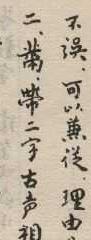 不误，可以兼从，理由
二、蔕、带二字古声相